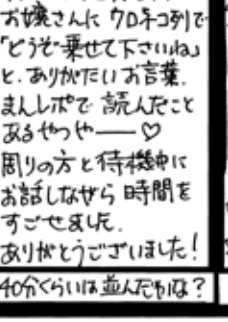 お嬢さんに クロネコ列で
「どうぞ乗せて下さいね」
と、ありがたいお言葉。
まんレポで 読んだこと
あるやつや――♡
周りの方と待機中に
お話しながら 時間を
すごせました。
ありがとうございました!
40分くらいは並んだかな?